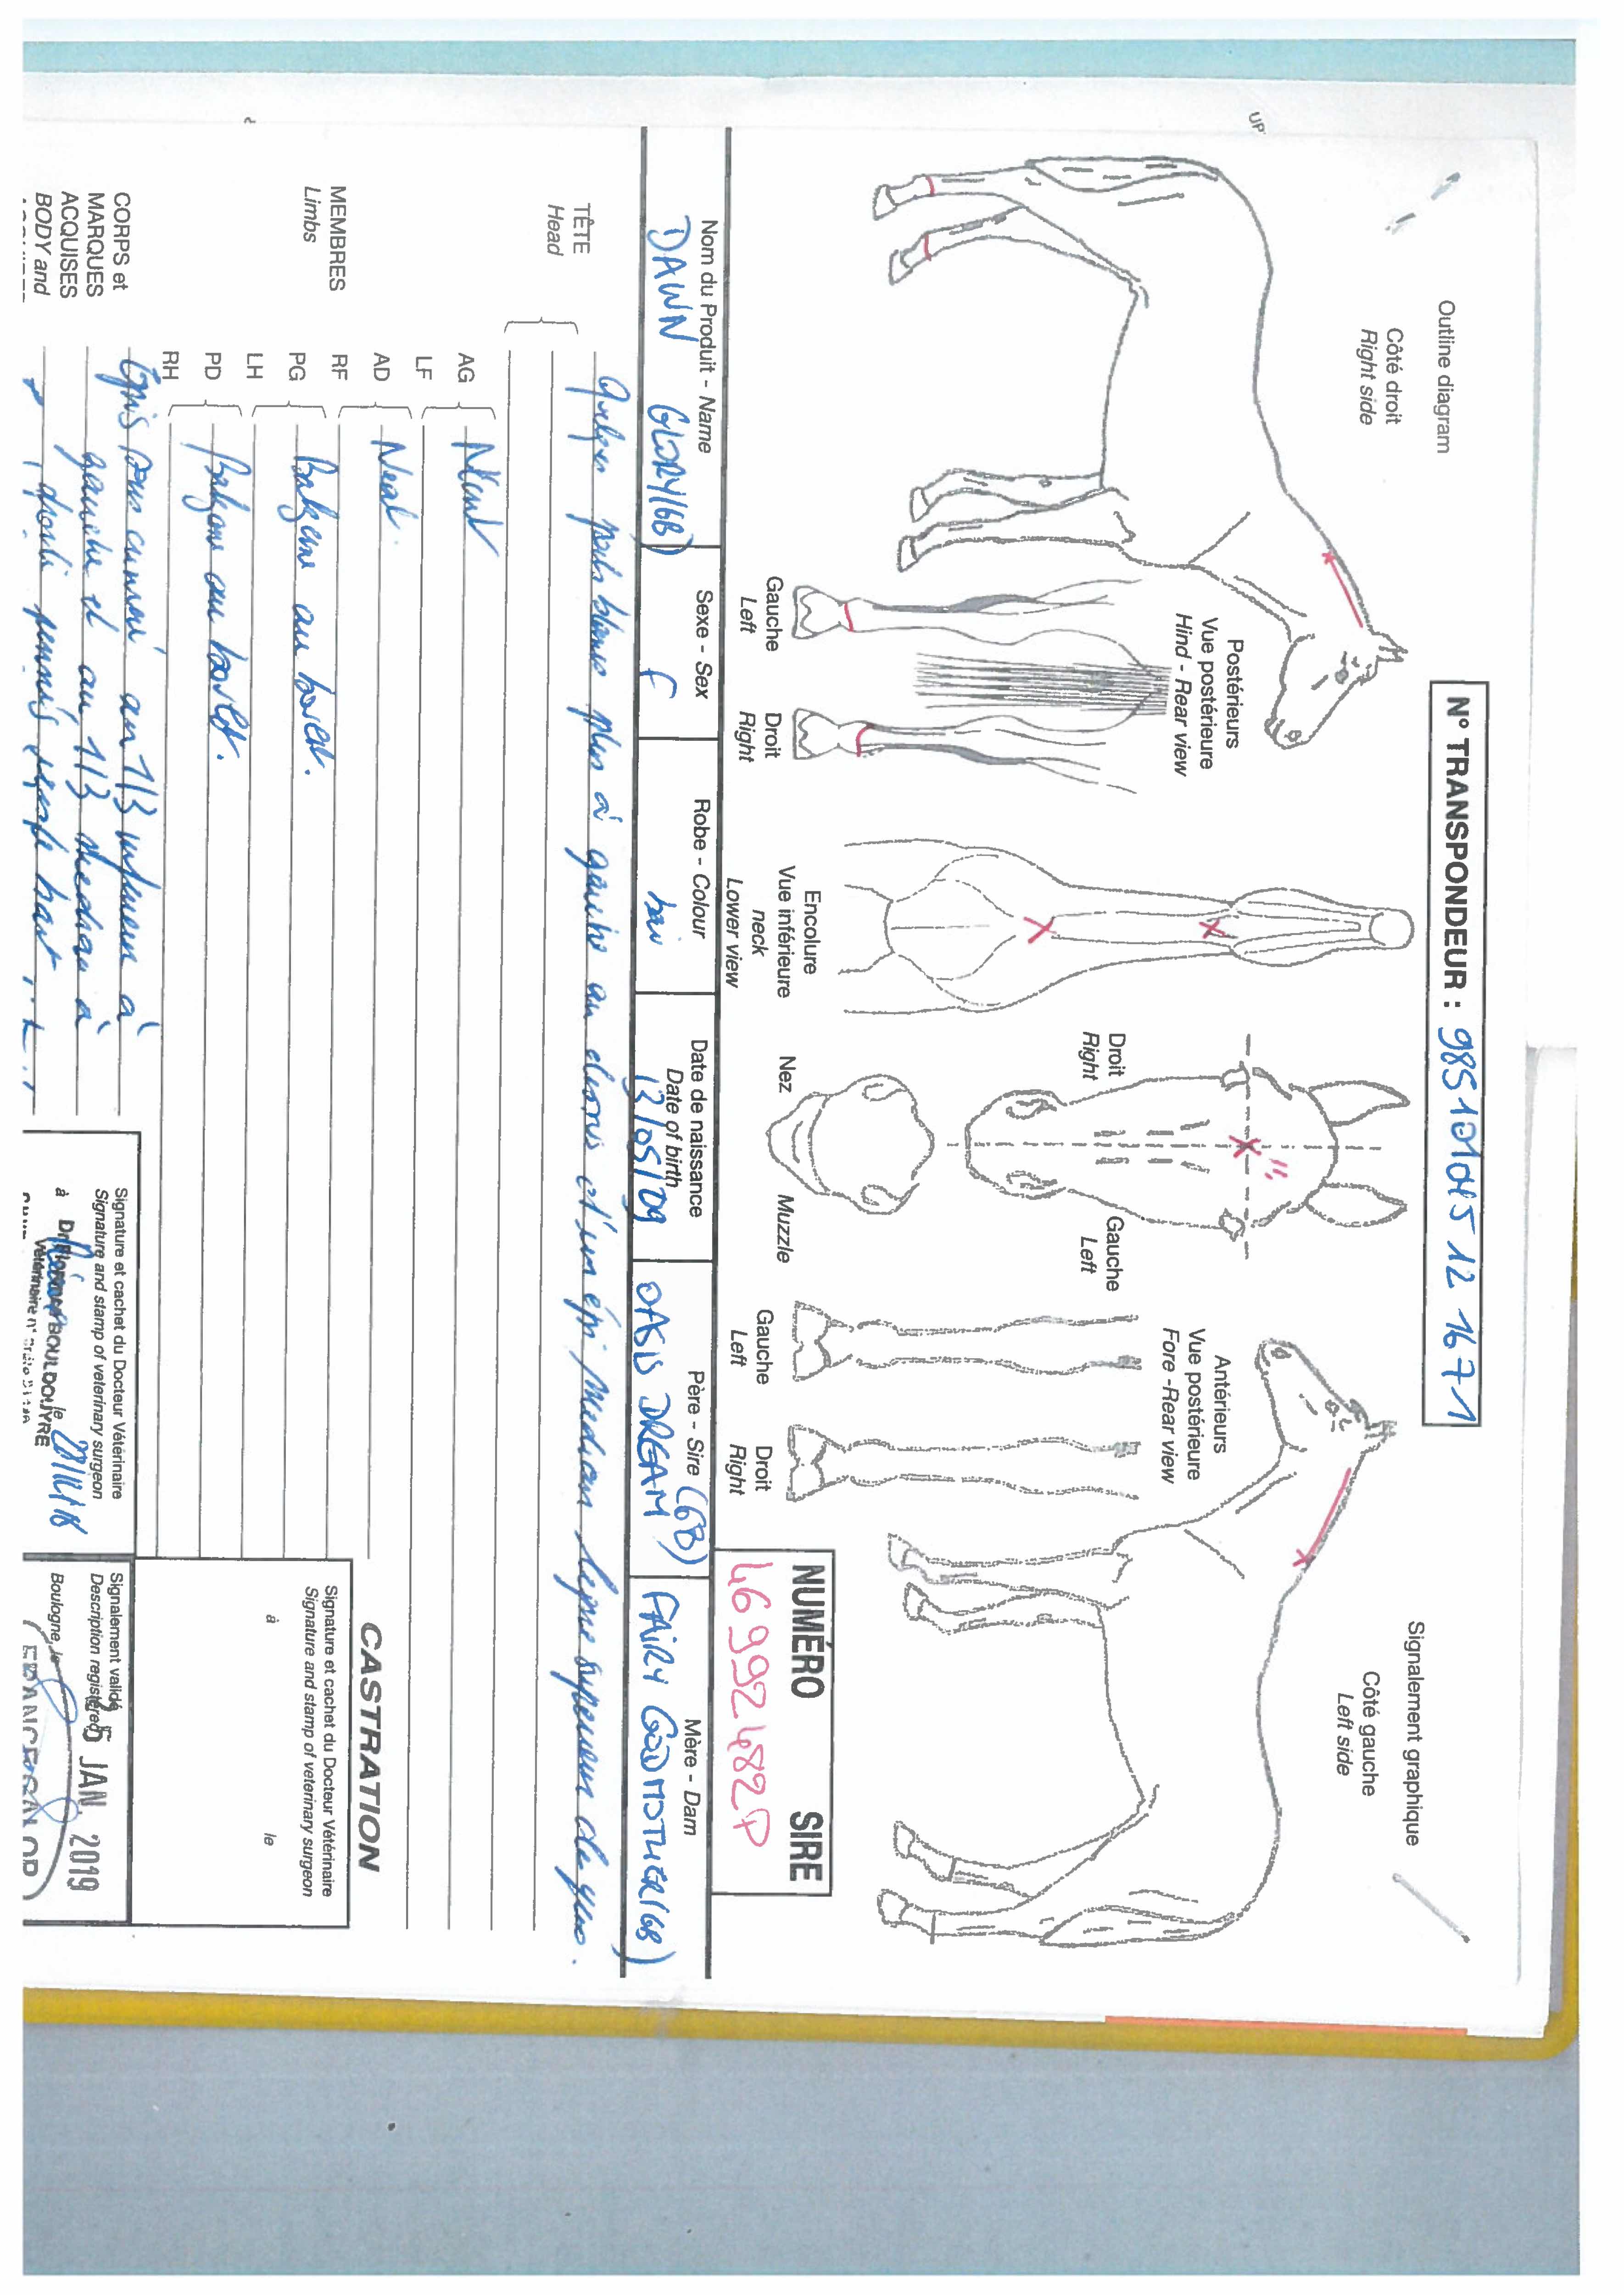 UP
Outline diagram
Signalement graphique
Côté droit
Right side
Côté gauche
Left side
N° TRANSPONDEUR : 985101045 12 1671
Postérieurs
Vue postérieure
Hind - Rear view
Gauche
Left
Droit
Right
Encolure
Vue inférieure
neck
Lower view
Droit
Right
Gauche
Left
Nez
Muzzle
Antérieurs
Vue postérieure
Fore - Rear view
Gauche
Left
Droit
Right
NUMÉRO SIRE
46 999 2482P
Nom du Produit - Name
DAWN GLORY(GB)
Sexe - Sex
F
Robe - Colour
bai
Date de naissance
Date of birth
13/05/09
Père - Sire
OASIS DREAM (GB)
Mère - Dam
FAIRY GODMOTHER(GB)
TÊTE
Head
Quelques poils blancs plus à gauche au dessus d'un épi médian ligne supérieure des yeux.
MEMBRES
Limbs
AG
LF
Néant
AD
RF
Néant.
PG
LH
Balzane au boulet.
PD
RH
Balzane au boulet.
CORPS et
MARQUES
ACQUISES
BODY and
Epis sous crinière au 1/3 inférieur à
gauche et au 1/3 médian à
droite remontés haut
CASTRATION
Signature et cachet du Docteur Vétérinaire
Signature and stamp of veterinary surgeon
à
le
Signature et cachet du Docteur Vétérinaire
Signature and stamp of veterinary surgeon
à
le
Vétérinaire n°
Signalement validé
Description registered
25 JAN. 2019
Boulogne, le
FRANCE GALOP